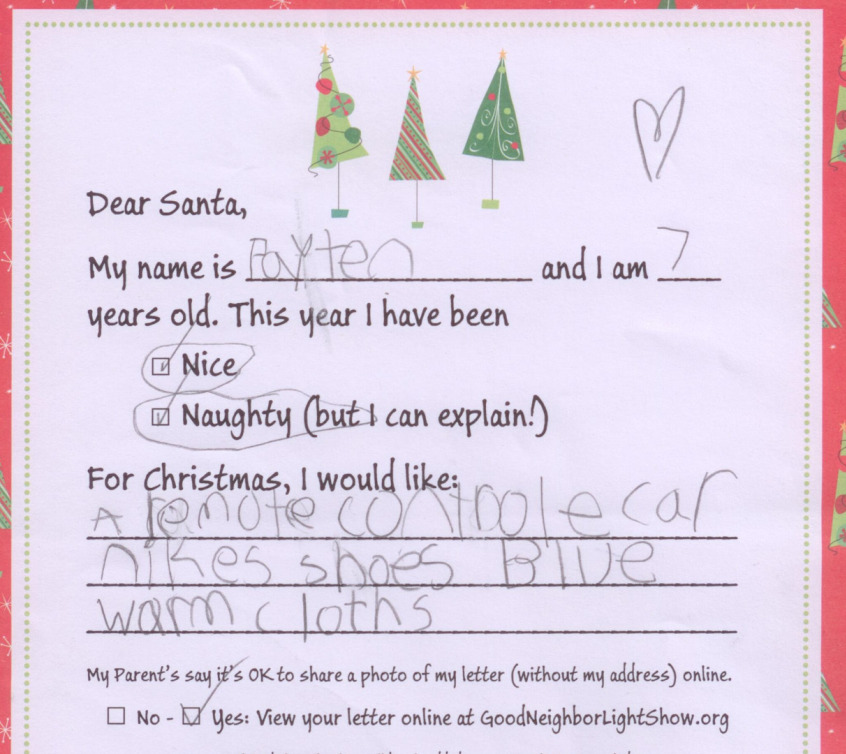 Dear Santa,
My name is Payten and I am 7
years old. This year I have been
☑ Nice
☑ Naughty (but I can explain!)
For Christmas, I would like:
A remote controle car
nikes shoes Blue
warm cloths
My Parent's say it's OK to share a photo of my letter (without my address) online.
☐ No - ☑ Yes: View your letter online at GoodNeighborLightShow.org